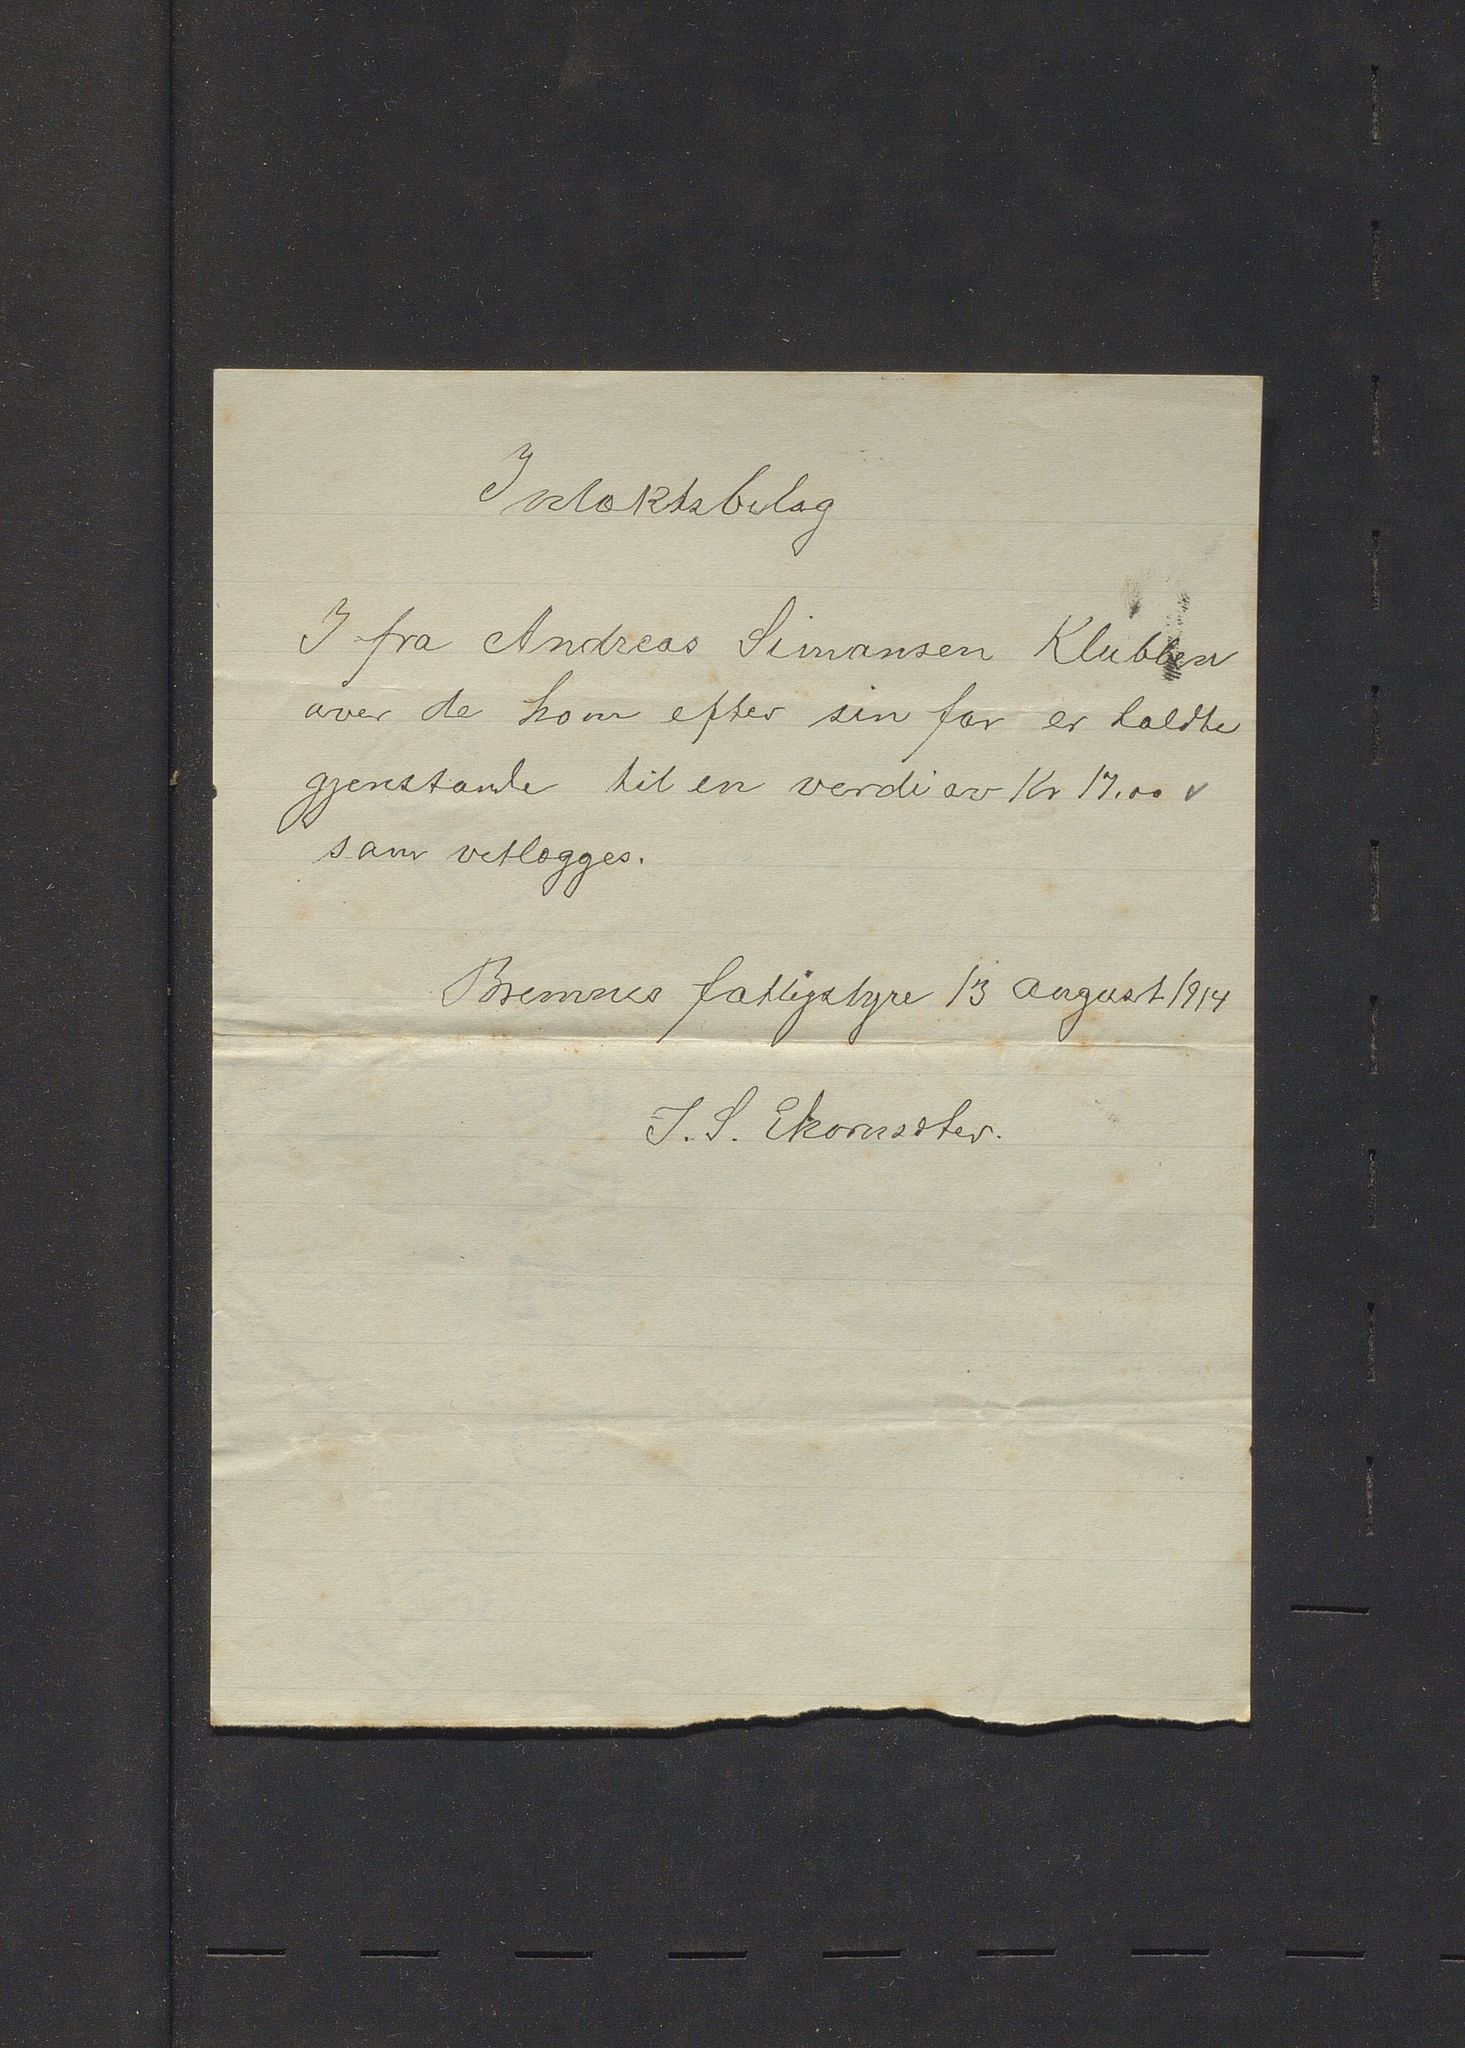 Intektsbelag
I fra Andreas Simansen Klubben
over de ham efter sin far er holdte
gjenstande til en verdi av Kr 17.00 v
som vetlegges.
Bremnes fattigstyre 13 august 1914
J. S. Ekornsæter.